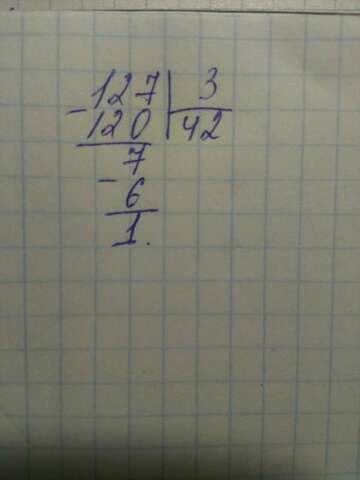 - 127 | 3
120 | 42
7
- 6
1.